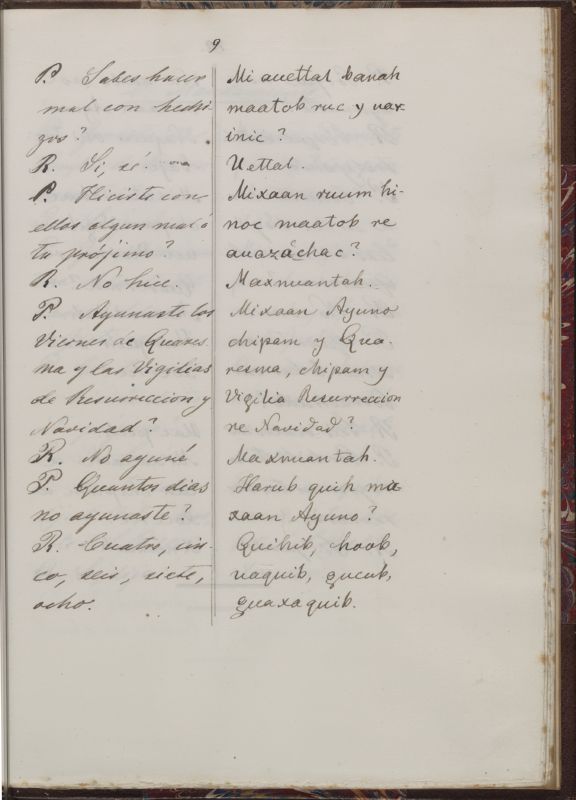 9
P. Sabes hacer
mal con hechi-
zos?
R. Si, sé.
P. Hiciste con
ellos algun mal á
tu prójimo?
R. No hice.
P. Ayunaste los
Viernes de Quares-
ma y las Vigilias
de Resurreccion y
Navidad?
R. No ayuné
P. Quantos dias
no ayunaste?
R. Cuatro, cin-
co, seis, siete,
ocho.
Mi auettal banah
maatob ruc y uax-
inic?
Uettal.
Mixaan ruum hi-
noc maatob re
auazáchac?
Maxnuantah.
Mixaan Ayuno
chipam y Qua-
resma, chipam y
Vigilia Resurreccion
re Navidad?
Maxnuantah.
Harub quih ma-
xaan Ayuno?
Quihib, hoob,
uaquib, gucub,
guaxaquib.